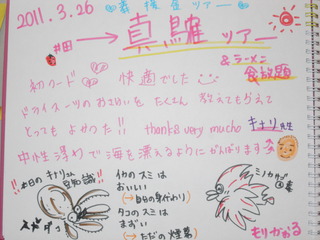 2011.3.26
井田 → 真鱈ツアー
&ラーメン食放題
初フード 快適でした
ドライスーツのおызかいを たくさん 教えてもらえて
とってもよかった!! thanks very mucho キナリ先生
中性浮力で海を漂えるようにがんばります
!!本日のキナリさん豆知識!!
イカのスミは
おいしい
(→自の身代わり)
タコのスミは
まずい
(→ただの煙幕)
スギダコ
ミノカサゴ
もりかおる